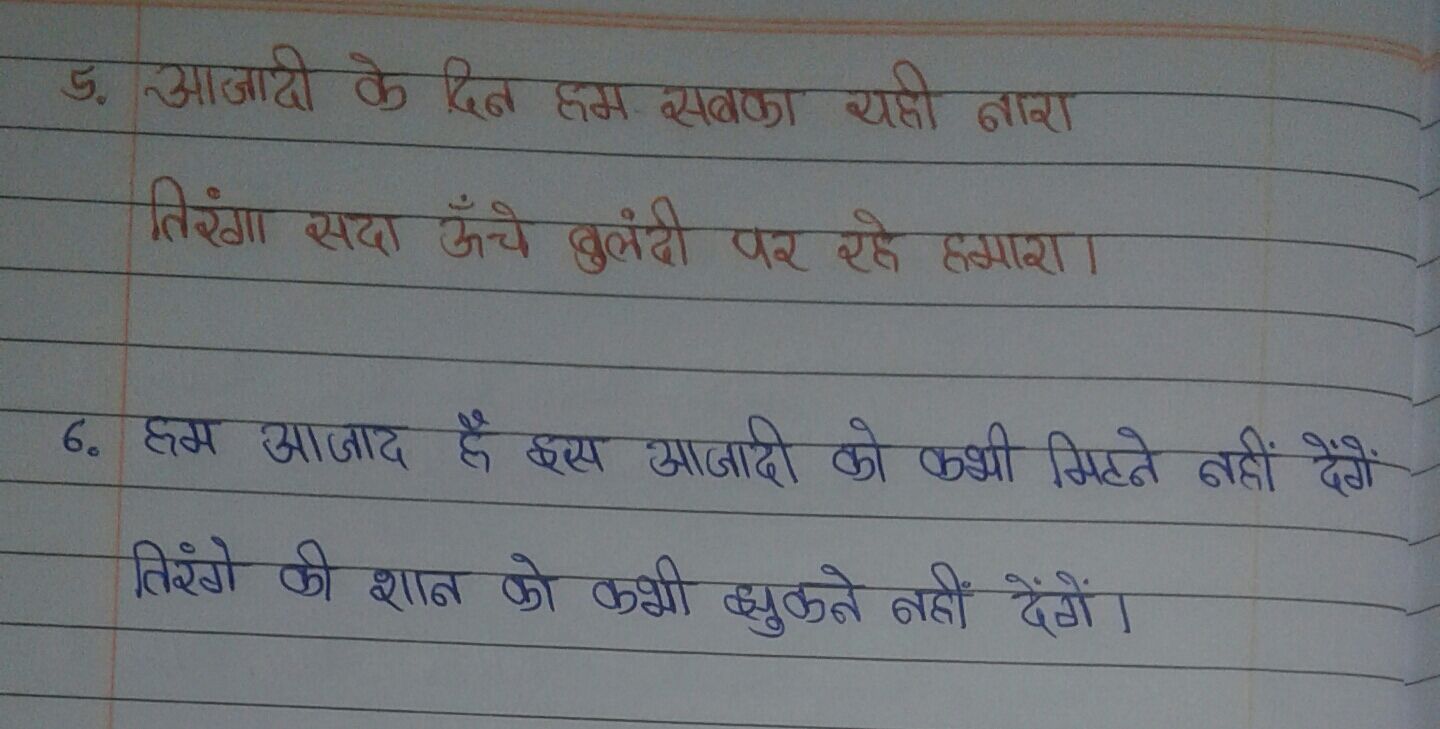 5. आजादी के दिन हम सबका यही नारा
तिरंगा सदा ऊँचे बुलंदी पर रहे हमारा।
6. हम आजाद है इस आजादी को कभी मिटने नहीं देंगें
तिरंगे की शान को कभी झुकने नहीं देंगें।